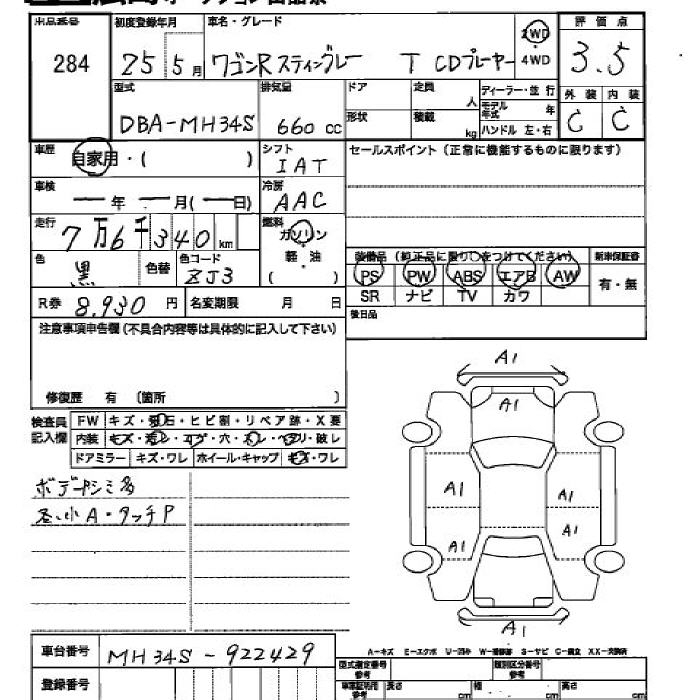 出品番号 初度登録年月 車名・グレード 評価点
284 25 5月 ワゴンRスティングレー T CDプレーヤー 2WD 4WD 3.5
型式 排気量 ドア 定員 人 ディーラー・並行 外装 内装
DBA-MH34S 660 cc 形状 積載 kg モデル年式 年 C C
ハンドル 左・右
車歴 自家用・( ) シフト IAT セールスポイント (正常に機能するものに限ります)
車検 ー年 ー月(ー日) 冷房 AAC
走行 7万6千340km 燃料 ガソリン・軽油 ( )
色 黒 色替 色コード ZJ3 装備品 (純正品に限り○をつけてください) 新車保証書
PS PW ABS エアB AW 有・無
R券 8,930円 名変期限 月 日 SR ナビ TV カワ
注意事項申告欄(不具合内容等は具体的に記入して下さい) 後日品
修復歴 有 〔箇所 〕
検査員記入欄 FW キズ・飛石・ヒビ割・リペア跡・X要
内装 キズ・汚レ・コゲ・穴・スレ・ヘタリ・破レ
ドアミラー キズ・ワレ ホイール・キャップ キズ・ワレ
ボデーシミ多
各小A・タッチP
A1
A1
A1 A1
A1
A1
A1
A-キズ E-エクボ U-凹み S-サビ C-腐立 XX-交換済
車台番号 MH34S-922429
登録番号
型式指定番号 参考 類別区分番号 参考
車庫証明用 参考 長さ cm 幅 cm 高さ cm